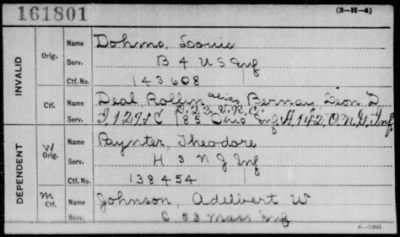 161801
(3-H-4)
INVALID
Orig.
Name Dohma, Louie
Serv. B 4 U S Inf
Ctf. No. 143608
Ctf. Name Deal, Rollin alias Bernay, Leon D.
Serv. I 127 & C 183 Ohio Inf, A 142, O.N.G. Inf
DEPENDENT
W
Orig.
Name Paynter, Theodore
Serv. H 3 N J Inf
Ctf. No. 138454
M
Ctf.
Name Johnson, Adelbert W
Serv. C 53 Mass Inf